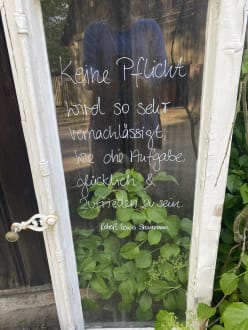 Keine Pflicht
wird so sehr
vernachlässigt,
wie die Aufgabe,
glücklich &
zufrieden zu sein.
Robert Louis Stevenson